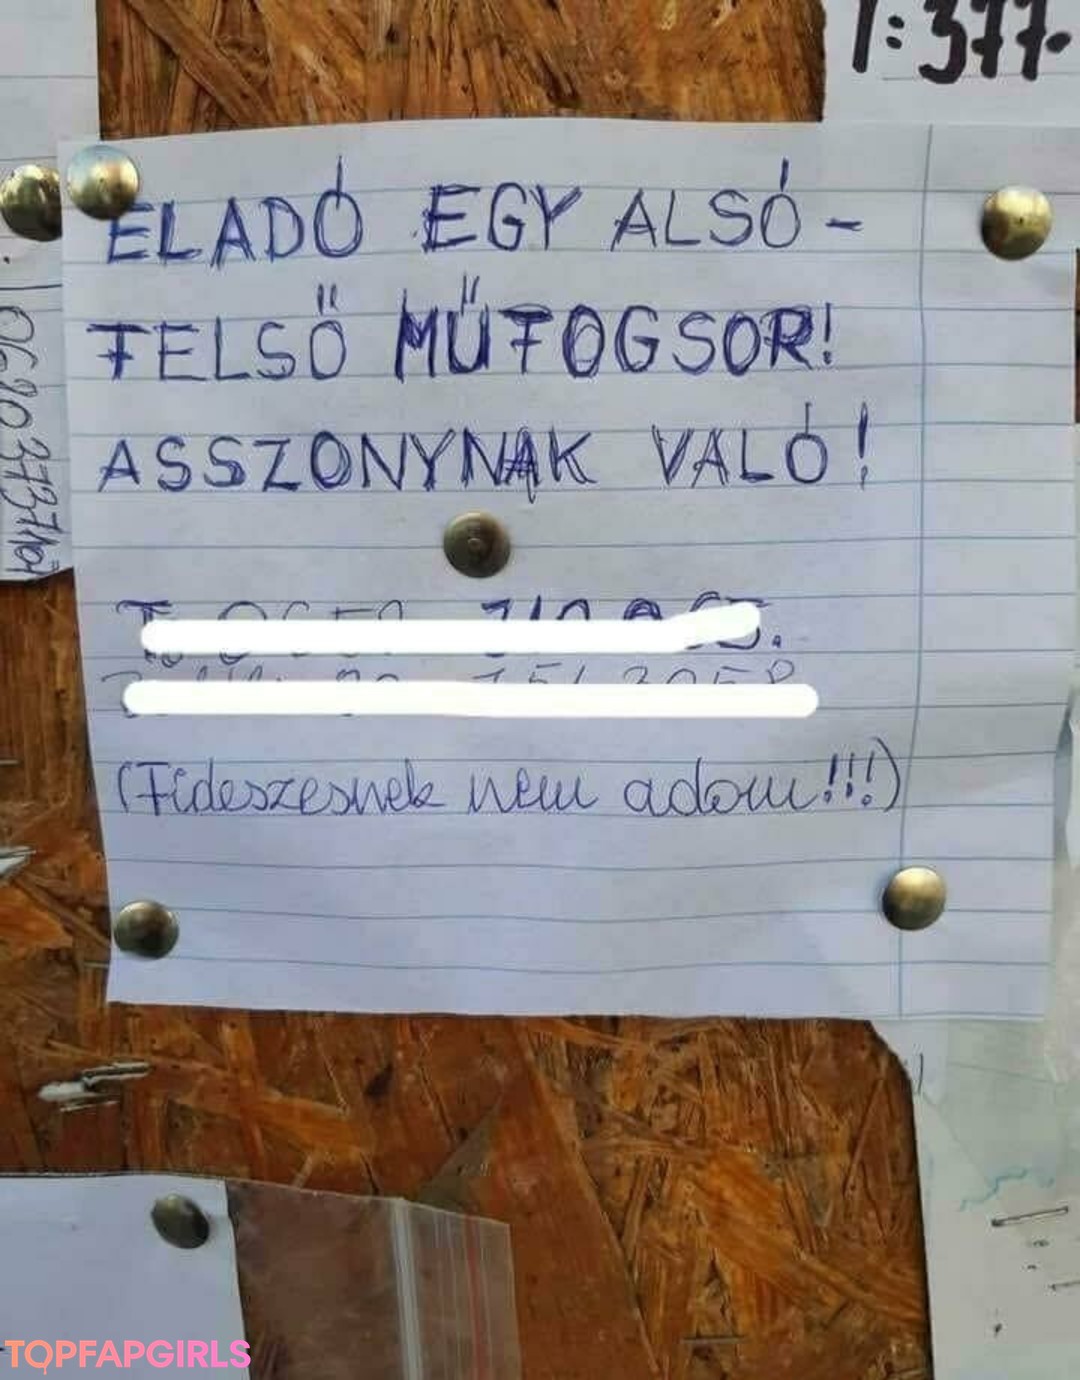 T: 377-
ELADÓ EGY ALSÓ-
FELSŐ MŰFOGSOR!
ASSZONYNAK VALÓ!
(Fideszesnek nem adom!!!)
TOPFAPGIRLS